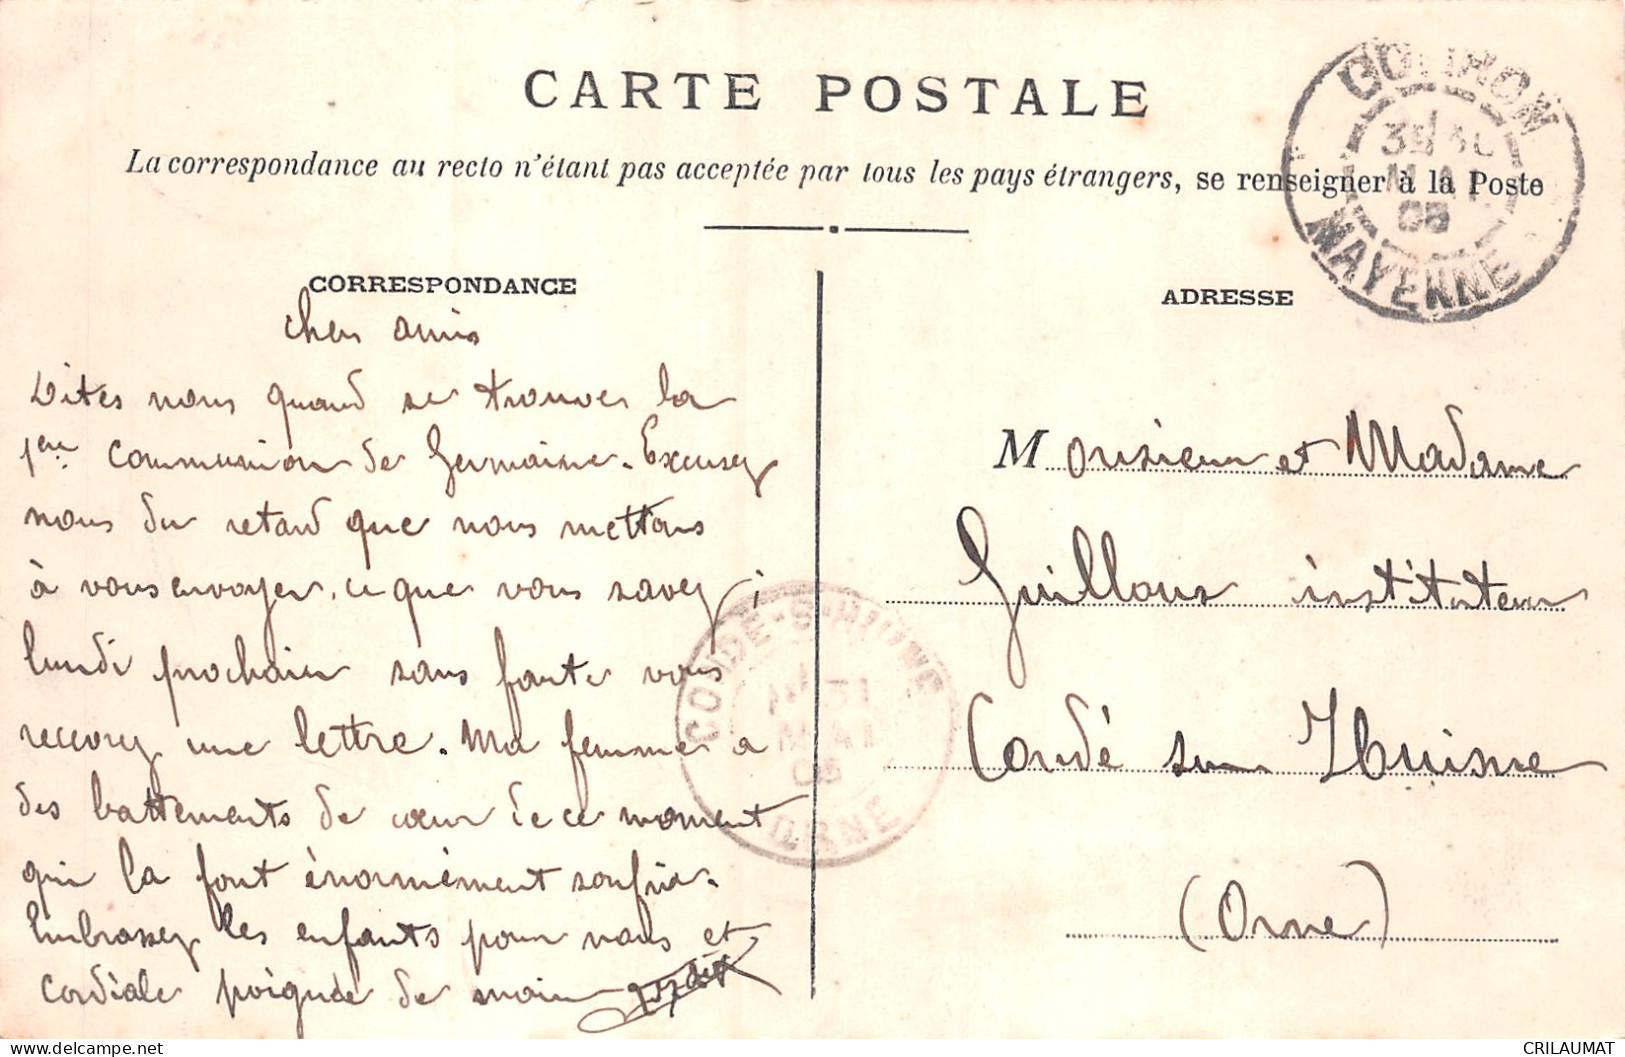 CARTE POSTALE
La correspondance au recto n'étant pas acceptée par tous les pays étrangers, se renseigner à la Poste
CORRESPONDANCE
Chers amis
Dites nous quand se trouve la
1ère Communion de Germaine. Excusez
nous du retard que nous mettons
à vous envoyer, ce que vous savez;
lundi prochain sans faute vous
recevrez une lettre. Ma femme a
des battements de cœur de ce moment
qui la font énormément souffrir.
Embrassez les enfants pour nous et
Cordiale poignée de main
ADRESSE
Monsieur et Madame
Guilloux instituteur
Condé sur Huisne
(Orne)
MAYENNE
MAI
05
CONDÉ-S-HUISNE
31
MAI
05
ORNE
CRILAUMAT